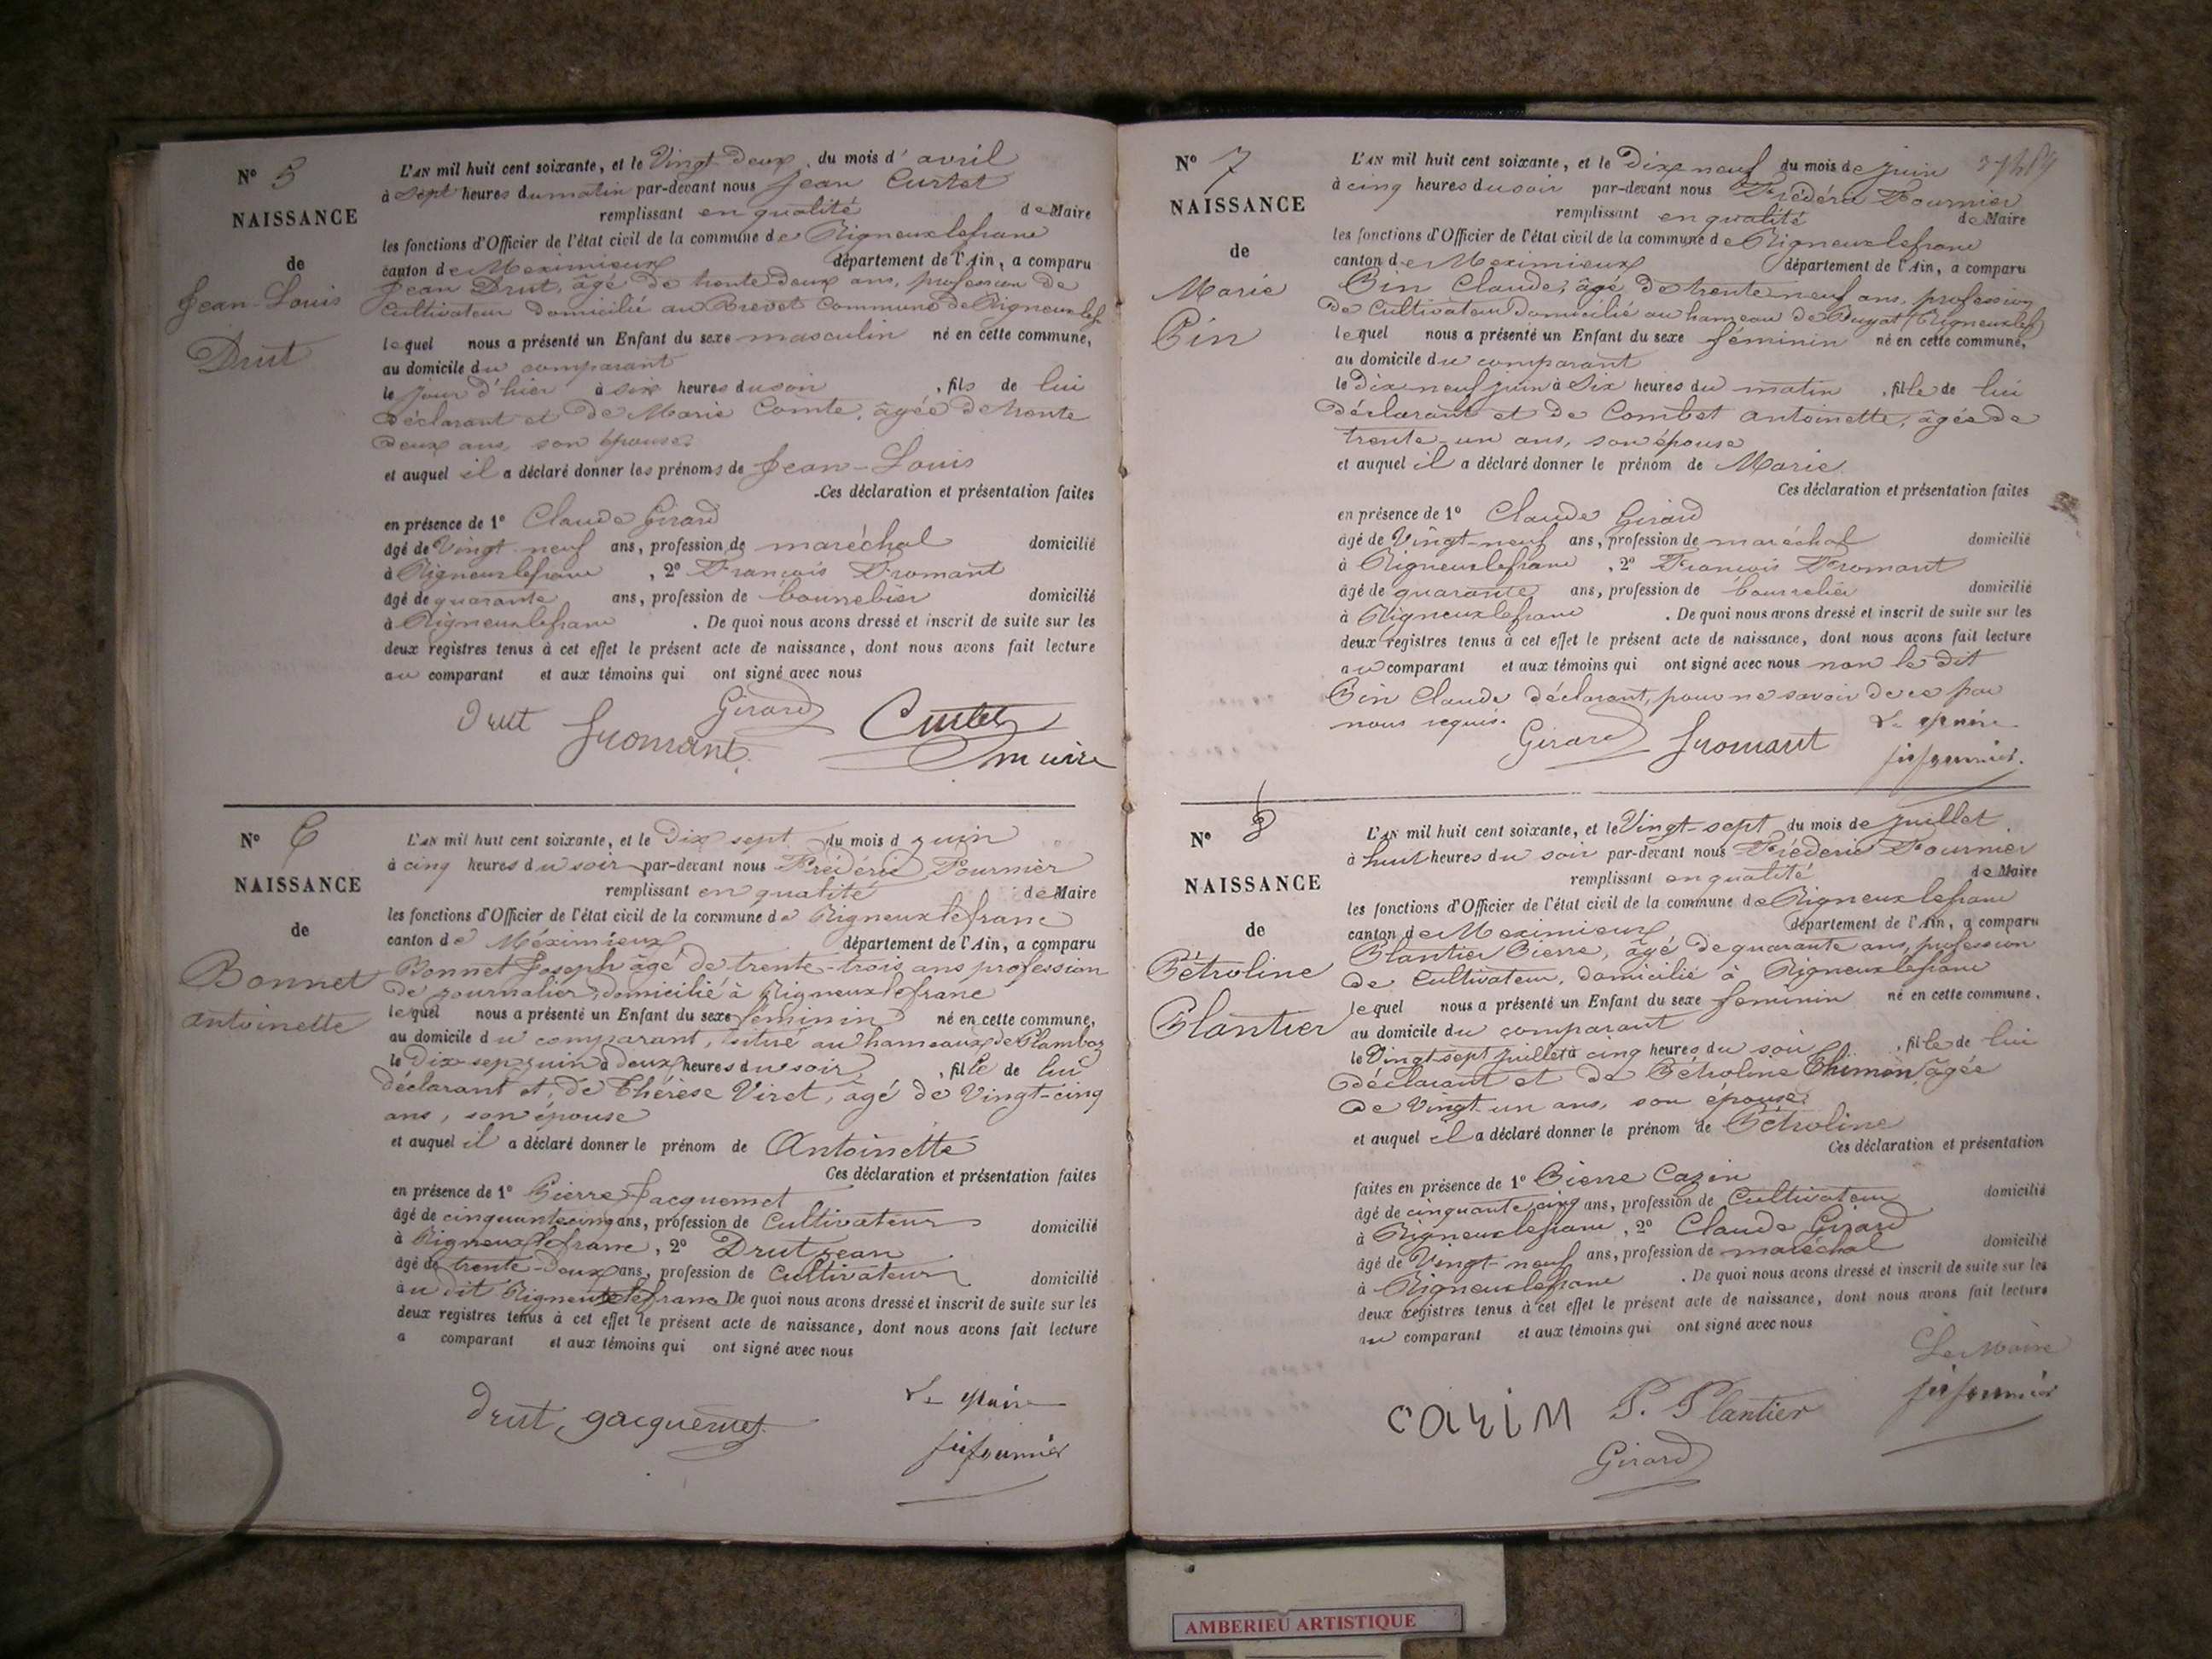 N° 5
NAISSANCE
de
Jean-Louis
Drut
L'AN mil huit cent soixante, et le Vingt-Deux du mois d'avril
à sept heures du matin par-devant nous Jean Curtet
remplissant en qualité de Maire
les fonctions d'Officier de l'état civil de la commune de Rigneuxlefranc
canton de Meximieux département de l'Ain, a comparu
Jean Drut, âgé de trente deux ans, profession de
Cultivateur domicilié au Brevet Commune de Rigneuxlef
lequel nous a présenté un Enfant du sexe masculin né en cette commune,
au domicile du comparant
le jour d'hier à six heures du soir, fils de lui
déclarant et de Marie Comte, âgée de trente
deux ans, son épouse
et auquel il a déclaré donner les prénoms de Jean-Louis
Ces déclaration et présentation faites
en présence de 1° Claude Girard
âgé de Vingt-neuf ans, profession de maréchal domicilié
à Rigneuxlefranc, 2° François Fromant
âgé de quarante ans, profession de bourrelier domicilié
à Rigneuxlefranc. De quoi nous avons dressé et inscrit de suite sur les
deux registres tenus à cet effet le présent acte de naissance, dont nous avons fait lecture
au comparant et aux témoins qui ont signé avec nous
Drut Fromant Girard Curtet
maire
N° 6
NAISSANCE
de
Bonnet
antoinette
L'AN mil huit cent soixante, et le Dix sept du mois d juin
à cinq heures du soir par-devant nous Frédéric Fournier
remplissant en qualité de Maire
les fonctions d'Officier de l'état civil de la commune de Rigneuxlefranc
canton de Méximieux département de l'Ain, a comparu
Bonnet Joseph âgé de trente-trois ans profession
de journalier, domicilié à Rigneuxlefranc
lequel nous a présenté un Enfant du sexe féminin né en cette commune,
au domicile du comparant, situé au hameaux de Plamboz
le Dix-sep juin à deux heures du soir, fille de lui
déclarant et, de Thérèse Viret, âgé de Vingt-cinq
ans, son épouse
et auquel il a déclaré donner le prénom de Antoinette
Ces déclaration et présentation faites
en présence de 1° Pierre Jacquemet
âgé de cinquantecinq ans, profession de Cultivateur domicilié
à Rigneuxlefranc, 2° Drut jean
âgé de trente-deux ans, profession de Cultivateur domicilié
à u dit Rigneuxlefranc De quoi nous avons dressé et inscrit de suite sur les
deux registres tenus à cet effet le présent acte de naissance, dont nous avons fait lecture
a comparant et aux témoins qui ont signé avec nous
Drut Jacquemet Le Maire
N° 7
NAISSANCE
de
Marie
Pin
L'AN mil huit cent soixante, et le Dix neuf du mois de juin
à cinq heures du soir par-devant nous Frédéric Fournier
remplissant en qualité de Maire
les fonctions d'Officier de l'état civil de la commune de Rigneuxlefranc
canton de Meximieux département de l'Ain, a comparu
Pin Claude, âgé de trente neuf ans, profession
de Cultivateur domicilié au hameau de Duyat (Rigneuxlef)
lequel nous a présenté un Enfant du sexe féminin né en cette commune,
au domicile du comparant
le Dix neuf juin à Six heures du matin, fille de lui
déclarant et de Combet antoinette, âgée de
trente-un ans, son épouse
et auquel il a déclaré donner le prénom de Marie
Ces déclaration et présentation faites
en présence de 1° Claude Girard
âgé de Vingt-neuf ans, profession de maréchal domicilié
à Rigneuxlefranc, 2° François Fromant
âgé de quarante ans, profession de bourrelier domicilié
à Rigneuxlefranc. De quoi nous avons dressé et inscrit de suite sur les
deux registres tenus à cet effet le présent acte de naissance, dont nous avons fait lecture
au comparant et aux témoins qui ont signé avec nous non le dit
Pin Claude déclarant, pour ne savoir de ce par
nous requis.
Girard Fromant Le Maire
N° 8
NAISSANCE
de
Pétroline
Plantier
L'AN mil huit cent soixante, et le Vingt-sept du mois de juillet
à huit heures du soir par-devant nous Fréderic Fournier
remplissant en qualité de Maire
les fonctions d'Officier de l'état civil de la commune de Rigneuxlefranc
canton de Meximieux département de l'Ain, a comparu
Plantier Pierre, âgé de quarante ans, profession
de Cultivateur, domicilié à Rigneuxlefranc
lequel nous a présenté un Enfant du sexe féminin né en cette commune.
au domicile du comparant
le Vingt-sept juillet à cinq heures du soir, fille de lui
déclarant et de Pétroline Thimon, âgée
de Vingt-un ans, son épouse
et auquel il a déclaré donner le prénom de Pétroline
Ces déclaration et présentation
faites en présence de 1° Pierre Cazin
âgé de cinquante cinq ans, profession de Cultivateur domicilié
à Rigneuxlefranc, 2° Claude Girard
âgé de Vingt-neuf ans, profession de maréchal domicilié
à Rigneuxlefranc. De quoi nous avons dressé et inscrit de suite sur les
deux registres tenus à cet effet le présent acte de naissance, dont nous avons fait lecture
au comparant et aux témoins qui ont signé avec nous
Le Maire
cazin P. Plantier
Girard
AMBERIEU ARTISTIQUE